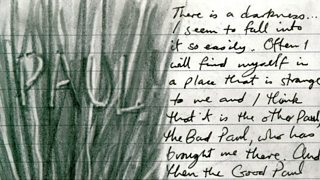 PAUL
There is a darkness...
I seem to fall into
it so easily. Often I
will find myself in
a place that is strange
to me and I think
that it is the other Paul,
the Bad Paul, who has
brought me there. And
then the Good Paul